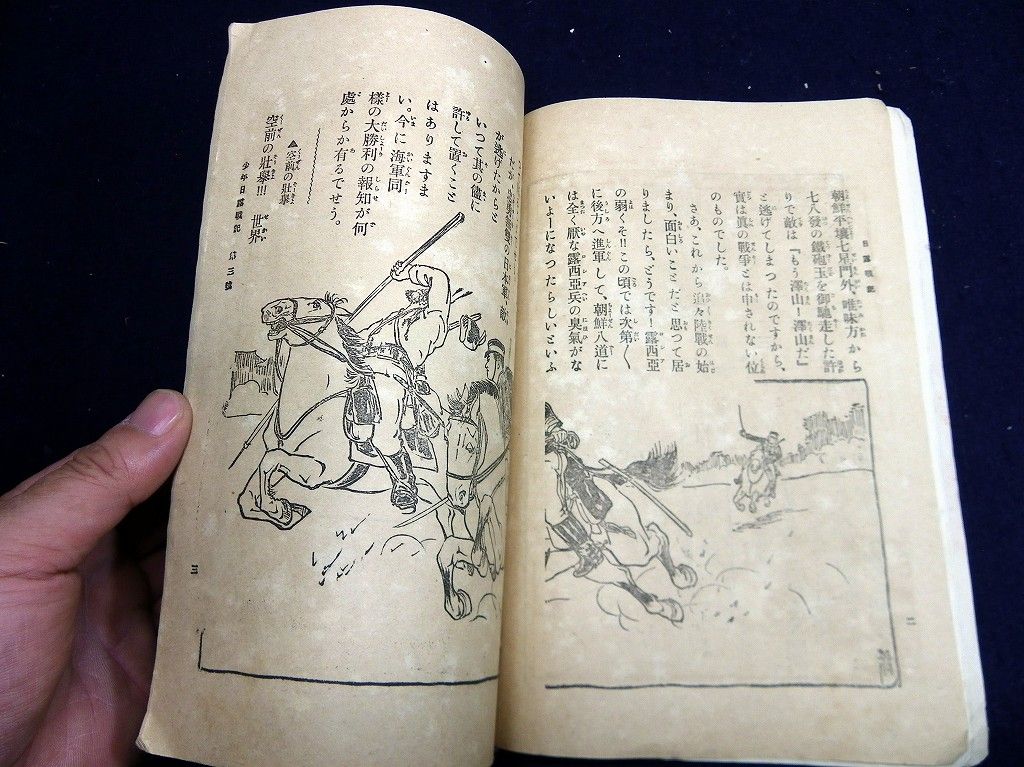 日露戰記
朝鮮平壤七星門外、唯味方から
七八發の鐵砲玉を御馳走した許
りで敵は『もう澤山！澤山だ』
と逃げてしまつたのですから、
實は眞の戰爭とは申されない位
のものでした。
さあ、これから追々陸戰の始
まり、面白いことだと思つて居
りましたら、どうです！露西亞
の弱くそ!!この頃では次第〱
に後方へ進軍して、朝鮮八道に
は全く厭な露西亞兵の臭氣がな
いよーになつたらしいといふ
二
が逃げたからと
いつて其の儘に
許して置くこと
はありますま
い。今に海軍同
樣の大勝利の報知が何
處からか有るでせう。
▲空前の壯擧
空前の壯擧!!! 世界
少年日露戰記 第三號
三